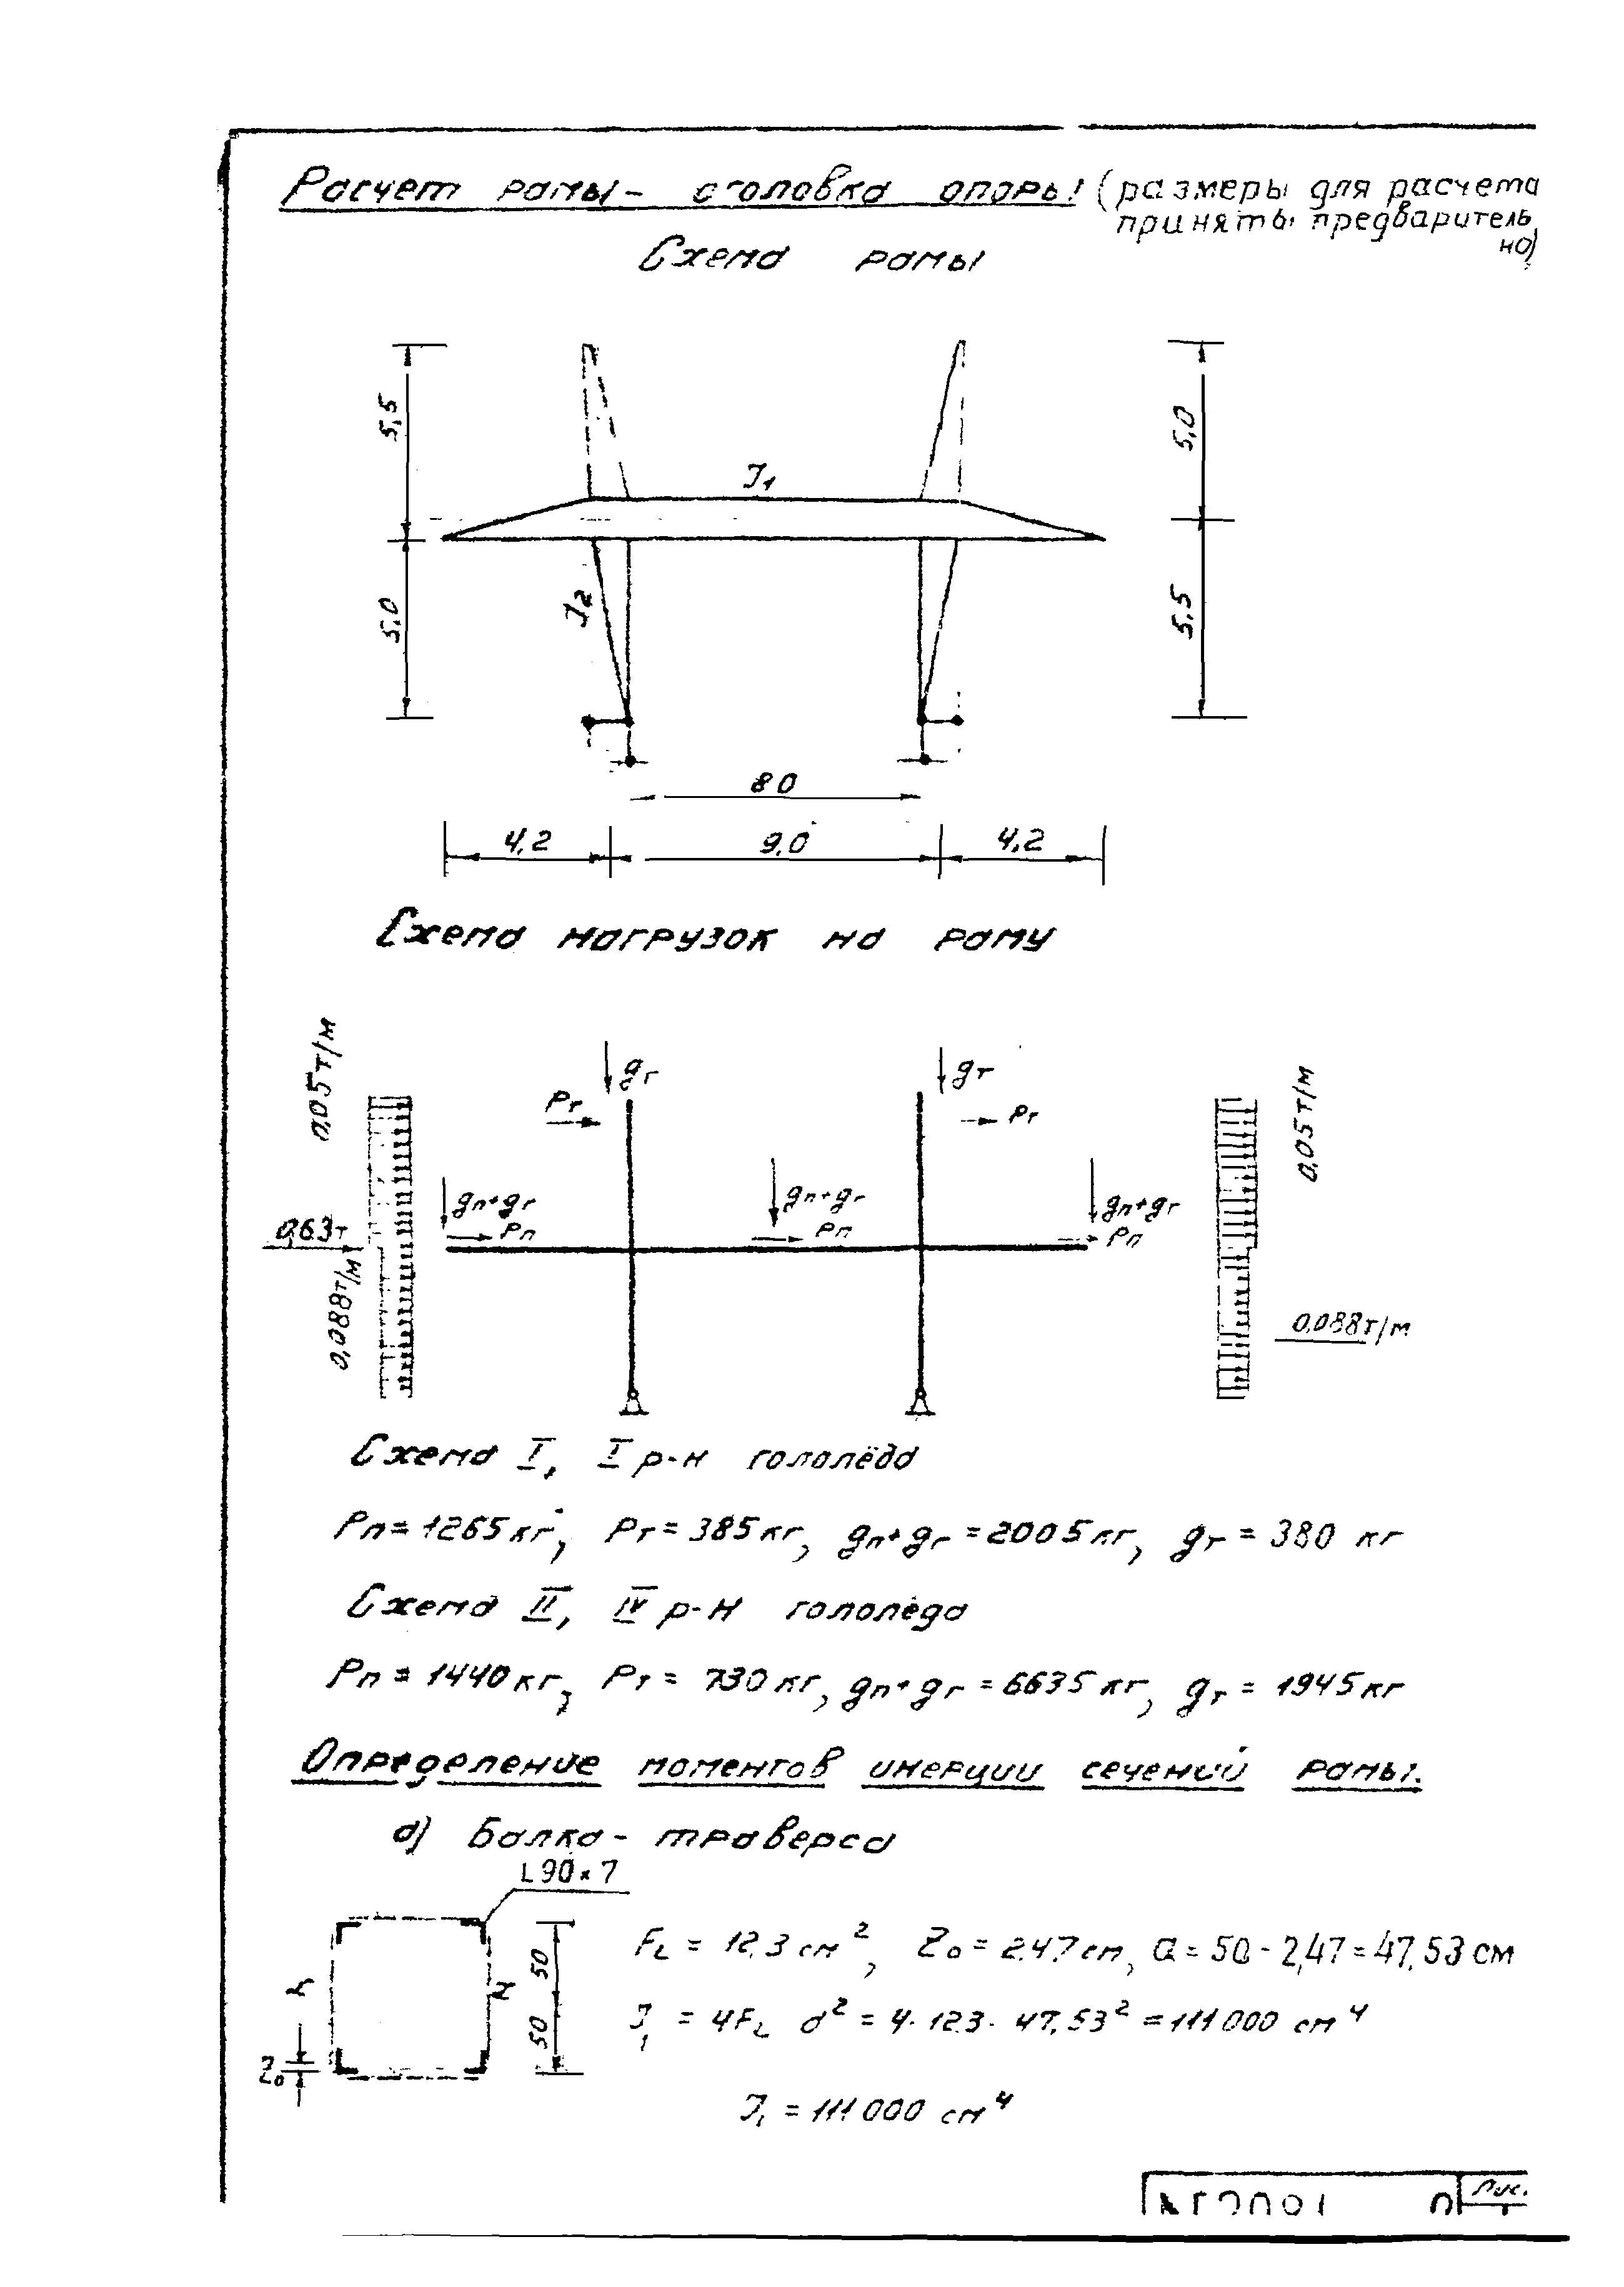 Расчет рамы - оголовка опоры (размеры для расчета
приняты предваритель
но)
Схема рамы
5,5
5,0
J₁
J₂
5,0
5,5
80
4,2 9,0 4,2
Схема нагрузок на раму
0,05т/м
gг gт
0,05т/м
Pт Pт
gп+gг gп+gг gп+gг
0,63т Pп Pп Pп
0,088т/м
0,088т/м
Схема I, I р-н гололёда
Pп = 1265кг, Pт = 385кг, gп+gг = 2005кг, gт = 380 кг
Схема II, IV р-н гололёда
Pп = 1440кг, Pт = 730кг, gп+gг = 6635кг, gт = 1945кг
Определение моментов инерции сечений рамы.
а) Балка - траверса
L90×7
F∟ = 12,3 см², Z₀ = 2,47см, a = 50 - 2,47 = 47,53 см
50
x x
J₁ = 4F∟ a² = 4·12,3·47,53² = 111000 см⁴
50
Z₀
J₁ = 111000 см⁴
Лис.